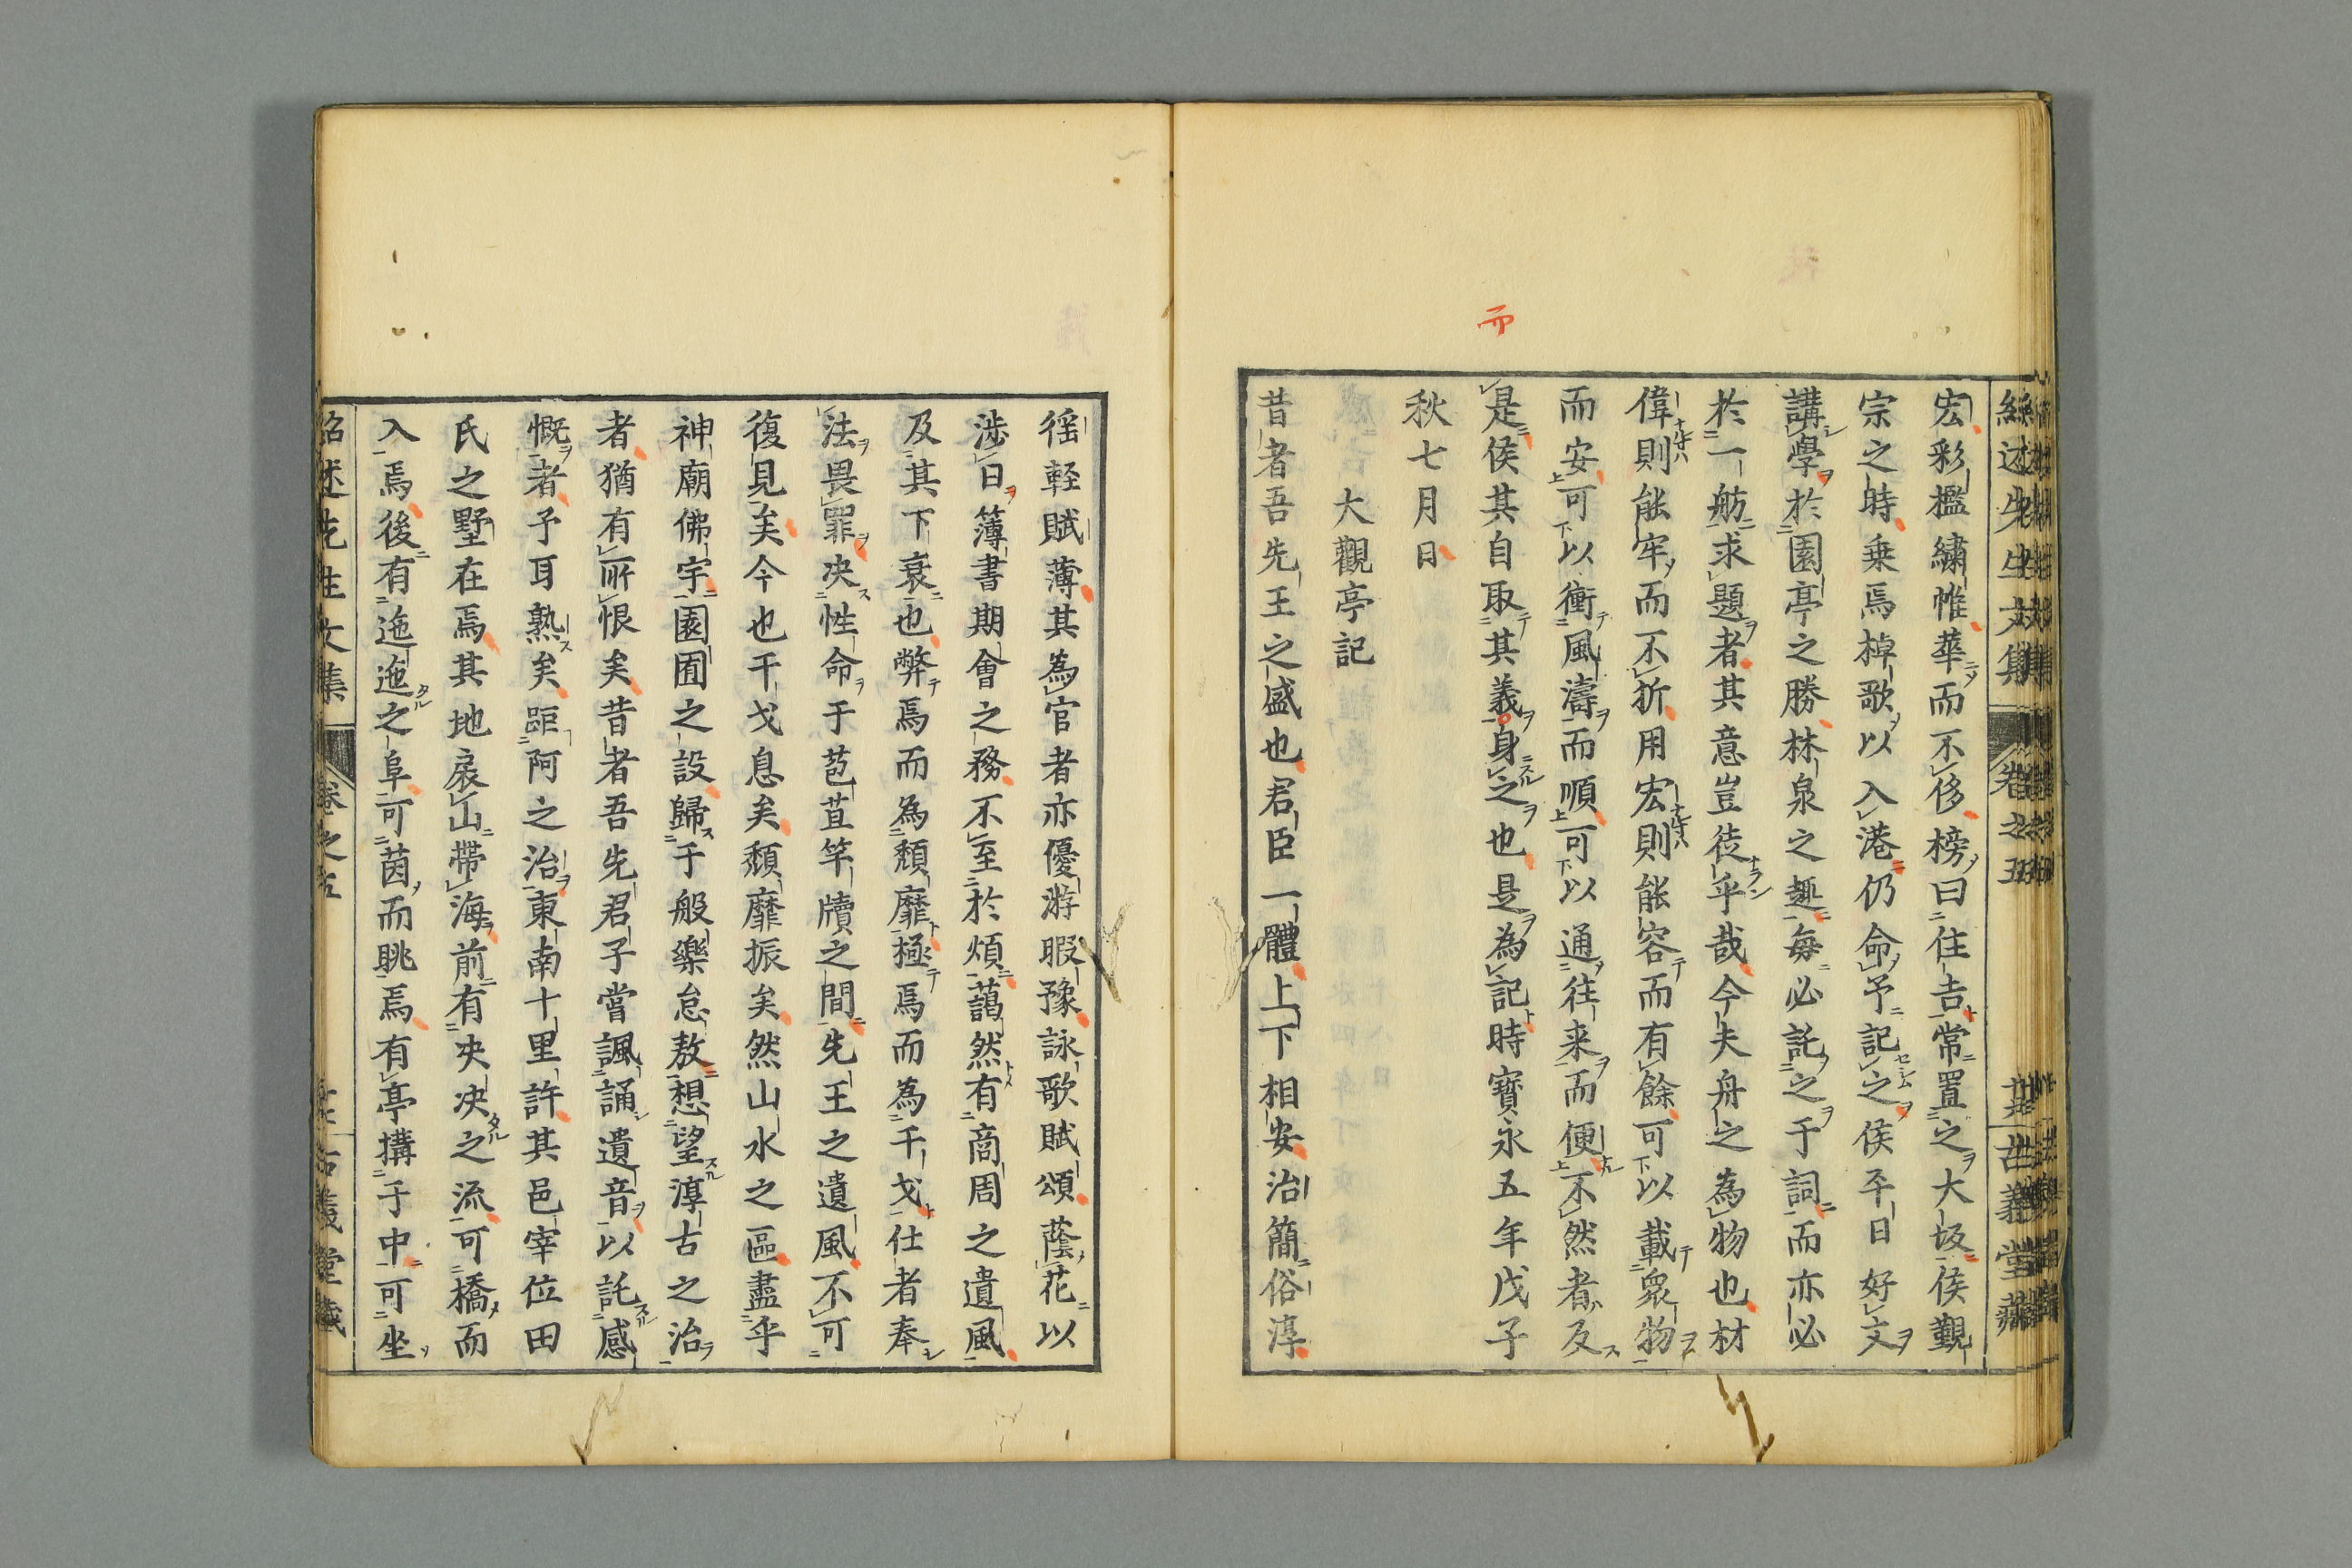 紹述先生文集 卷之五 古義堂藏
宏彩檻繡帷華而不侈榜曰住吉常置之大坂侯覲
宗之時乗焉棹歌以入港仍命予記之侯平日好文
講學於園亭之勝林泉之趣每必託之于詞而亦必
於一舫求題者其意豈徒乎哉今夫舟之為物也材
偉則能牢而不折用宏則能容而有餘可以載衆物
而安可以衝風濤而順可以通往来而便不然者反
是侯其自取其義身之也是為記時寶永五年戊子
而
秋七月日
大觀亭記
昔者吾先王之盛也君臣一體上下相安治簡俗淳
徭輕賦薄其為官者亦優游暇豫詠歌賦頌蔭花以
渉日簿書期會之務不至於煩藹然有商周之遺風
及其下衰也弊焉而為頽靡極焉而為干戈仕者奉
法畏罪决性命于苞苴竿牘之間先王之遺風不可
復見矣今也干戈息矣頽靡振矣然山水之區盡乎
神廟佛宇園囿之設歸于般樂怠敖想望淳古之治
者猶有所恨矣昔者吾先君子嘗諷誦遺音以託感
慨者予耳熟矣距阿之治東南十里許其邑宰位田
氏之墅在焉其地扆山帶海前有决决之流可橋而
入焉後有迤迤之阜可茵而眺焉有亭搆于中可坐
紹述先生文集 卷之五 古義堂藏